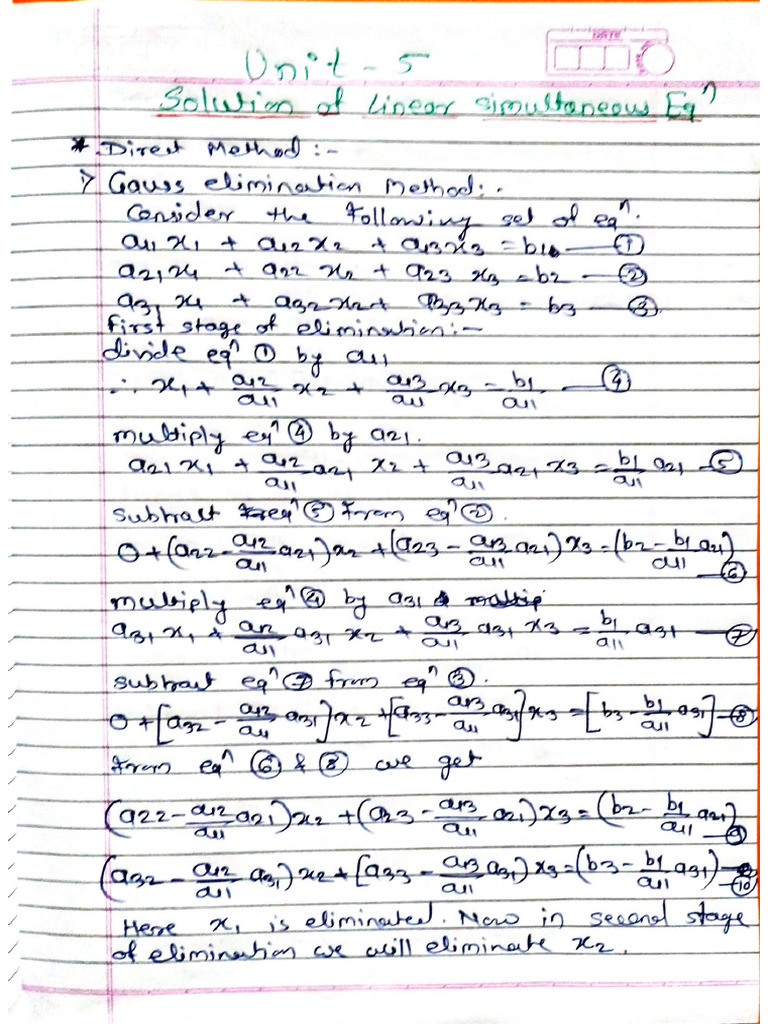 DATE
Unit - 5
Solution of Linear simultaneous Eqⁿ
* Direct Method :-
> Gauss elimination Method:-
Consider the following set of eqⁿ.
a11 x1 + a12 x2 + a13 x3 = b1 — ①
a21 x1 + a22 x2 + a23 x3 = b2 — ②
a31 x1 + a32 x2 + a33 x3 = b3 — ③
First stage of elimination:-
divide eqⁿ ① by a11
∴ x1 + a12/a11 x2 + a13/a11 x3 = b1/a11 — ④
multiply eqⁿ ④ by a21.
a21 x1 + a12/a11 a21 x2 + a13/a11 a21 x3 = b1/a11 a21 — ⑤
subtract eqⁿ ⑤ from eqⁿ ②.
0 + (a22 - a12/a11 a21) x2 + (a23 - a13/a11 a21) x3 = (b2 - b1/a11 a21) — ⑥
multiply eqⁿ ④ by a31
a31 x1 + a12/a11 a31 x2 + a13/a11 a31 x3 = b1/a11 a31 — ⑦
subtract eqⁿ ⑦ from eqⁿ ③.
0 + [a32 - a12/a11 a31] x2 + [a33 - a13/a11 a31] x3 = [b3 - b1/a11 a31] — ⑧
From eqⁿ ⑥ & ⑧ we get
(a22 - a12/a11 a21) x2 + (a23 - a13/a11 a21) x3 = (b2 - b1/a11 a21) — ⑨
(a32 - a12/a11 a31) x2 + [a33 - a13/a11 a31) x3 = (b3 - b1/a11 a31) — ⑩
Here x1 is eliminated. Now in second stage
of elimination we will eliminate x2.